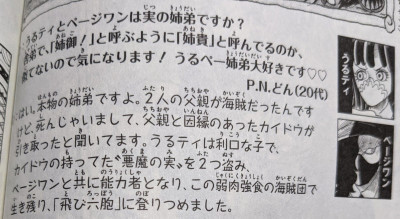 うるティとページワンは実の姉弟ですか？
弟で、「姉御！」と呼ぶように「姉貴」と呼んでるのか、
てないので気になります！うるペー姉弟大好きです♡♡
P.N.どん（20代）
はい。本物の姉弟ですよ。2人の父親が海賊だったんです
けど、死んじゃいまして、父親と因縁のあったカイドウが
引き取ったと聞いてます。うるティは利口な子で、
カイドウの持ってた“悪魔の実”を2つ盗み、
ページワンと共に能力者となり、この弱肉強食の海賊団で
生き残り、「飛び六胞」に登りつめました。
うるティ
ページワン